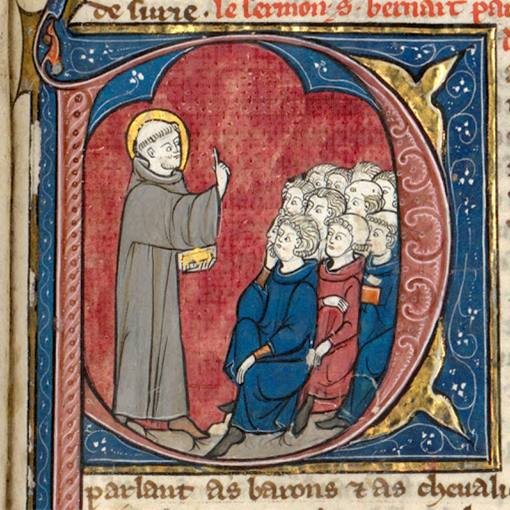 de surie. le sermon s. bernart par
parlant as barons ⁊ as chevali